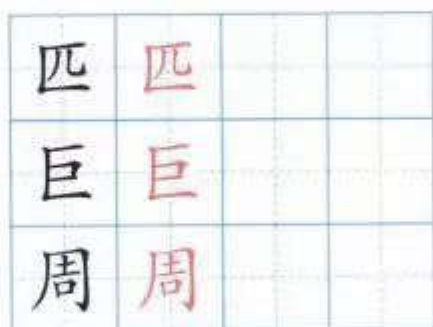 匹 匹
巨 巨
周 周